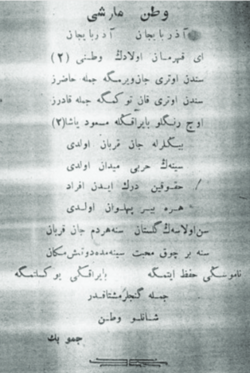 وطن مارشی
آذربایجان آذربایجان
ای قهرمان اولادك وطنی (۲)
سندن اوتری جان ویرمگه جمله حاضرز
سندن اوتری قان توكمگه جمله قادرز
اوچ رنگلو بایراقگله مسعود یاشا (۲)
بیگلرله جان قربان اولدی
سینه‌ڭ حربی میدان اولدی
حقوقین درك ایدن افراد
هره بیر پهلوان اولدی
سن اولاسه‌ڭ گلستان سنه هردم جان قربان
سنه بر چوق محبت سینه‌مده دونمش مكان
ناموسڭی حفظ ایتمگه بایراقڭی یوكسلتمگه
جمله گنجلر مشتاقدر
شانلو وطن
جمو بك